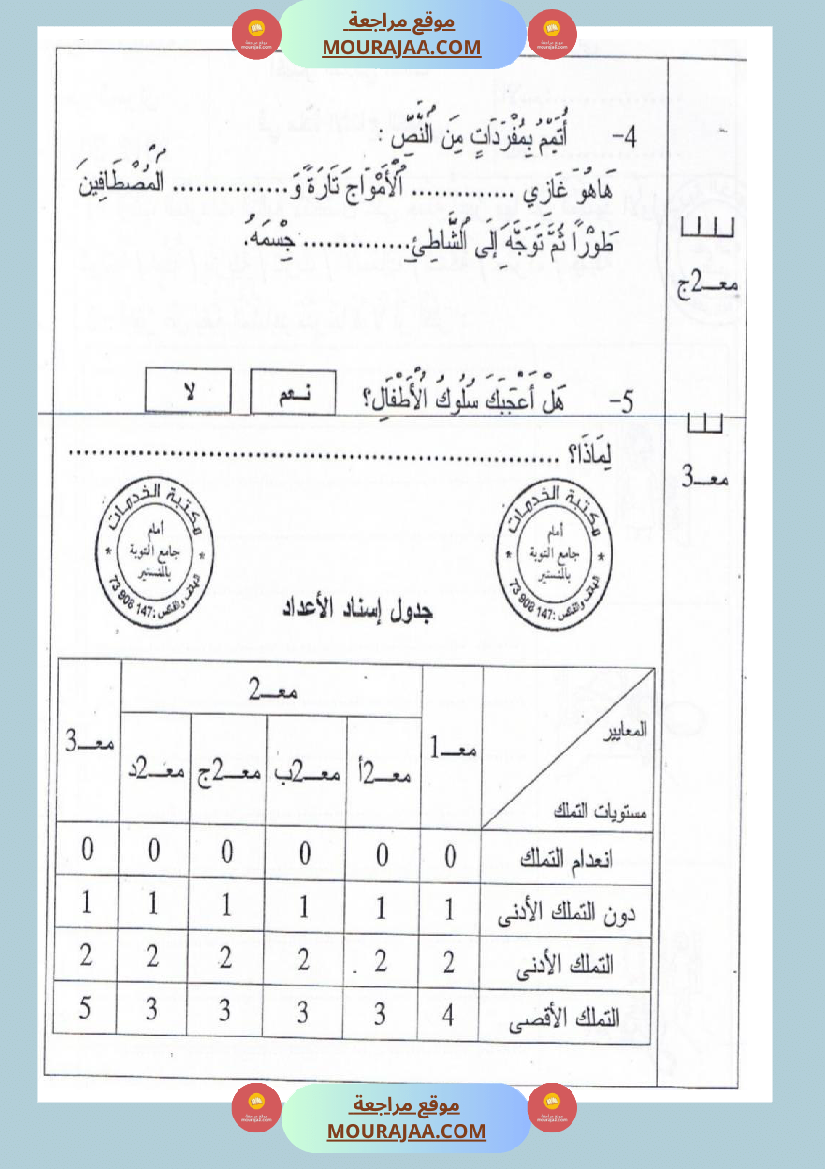 موقع مراجعة
MOURAJAA.COM
4- أُتَمِّمُ بِمُفْرَدَاتٍ مِنَ اُلنَّصِّ :
هَاهُوَ غَازِي .............. اُلْأَمْوَاجَ تَارَةً وَ............... اُلْمُصْطَافِينَ
طَوْرًا ثُمَّ تَوَجَّهَ إلى اُلشَّاطِئِ.............. جِسْمَهُ.
معـ2ج
5- هَلْ أَعْجَبَكَ سُلُوكُ اُلْأَطْفَالِ؟ نـعم لا
لِمَاذَا؟ ................................................................
معـ3
مكتبة الخدمات
أمام
جامع التوبة
بالمنستير
الهاتف والفاكس: 73 908 147
مكتبة الخدمات
أمام
جامع التوبة
بالمنستير
الهاتف والفاكس: 73 908 147
جدول إسناد الأعداد
المعايير
مستويات التملك
معـ1 معـ2 معـ3
معـ2أ معـ2ب معـ2ج معـ2د
انعدام التملك 0 0 0 0 0 0
دون التملك الأدنى 1 1 1 1 1 1
التملك الأدنى 2 2 2 2 2 2
التملك الأقصى 4 3 3 3 3 5
موقع مراجعة
MOURAJAA.COM